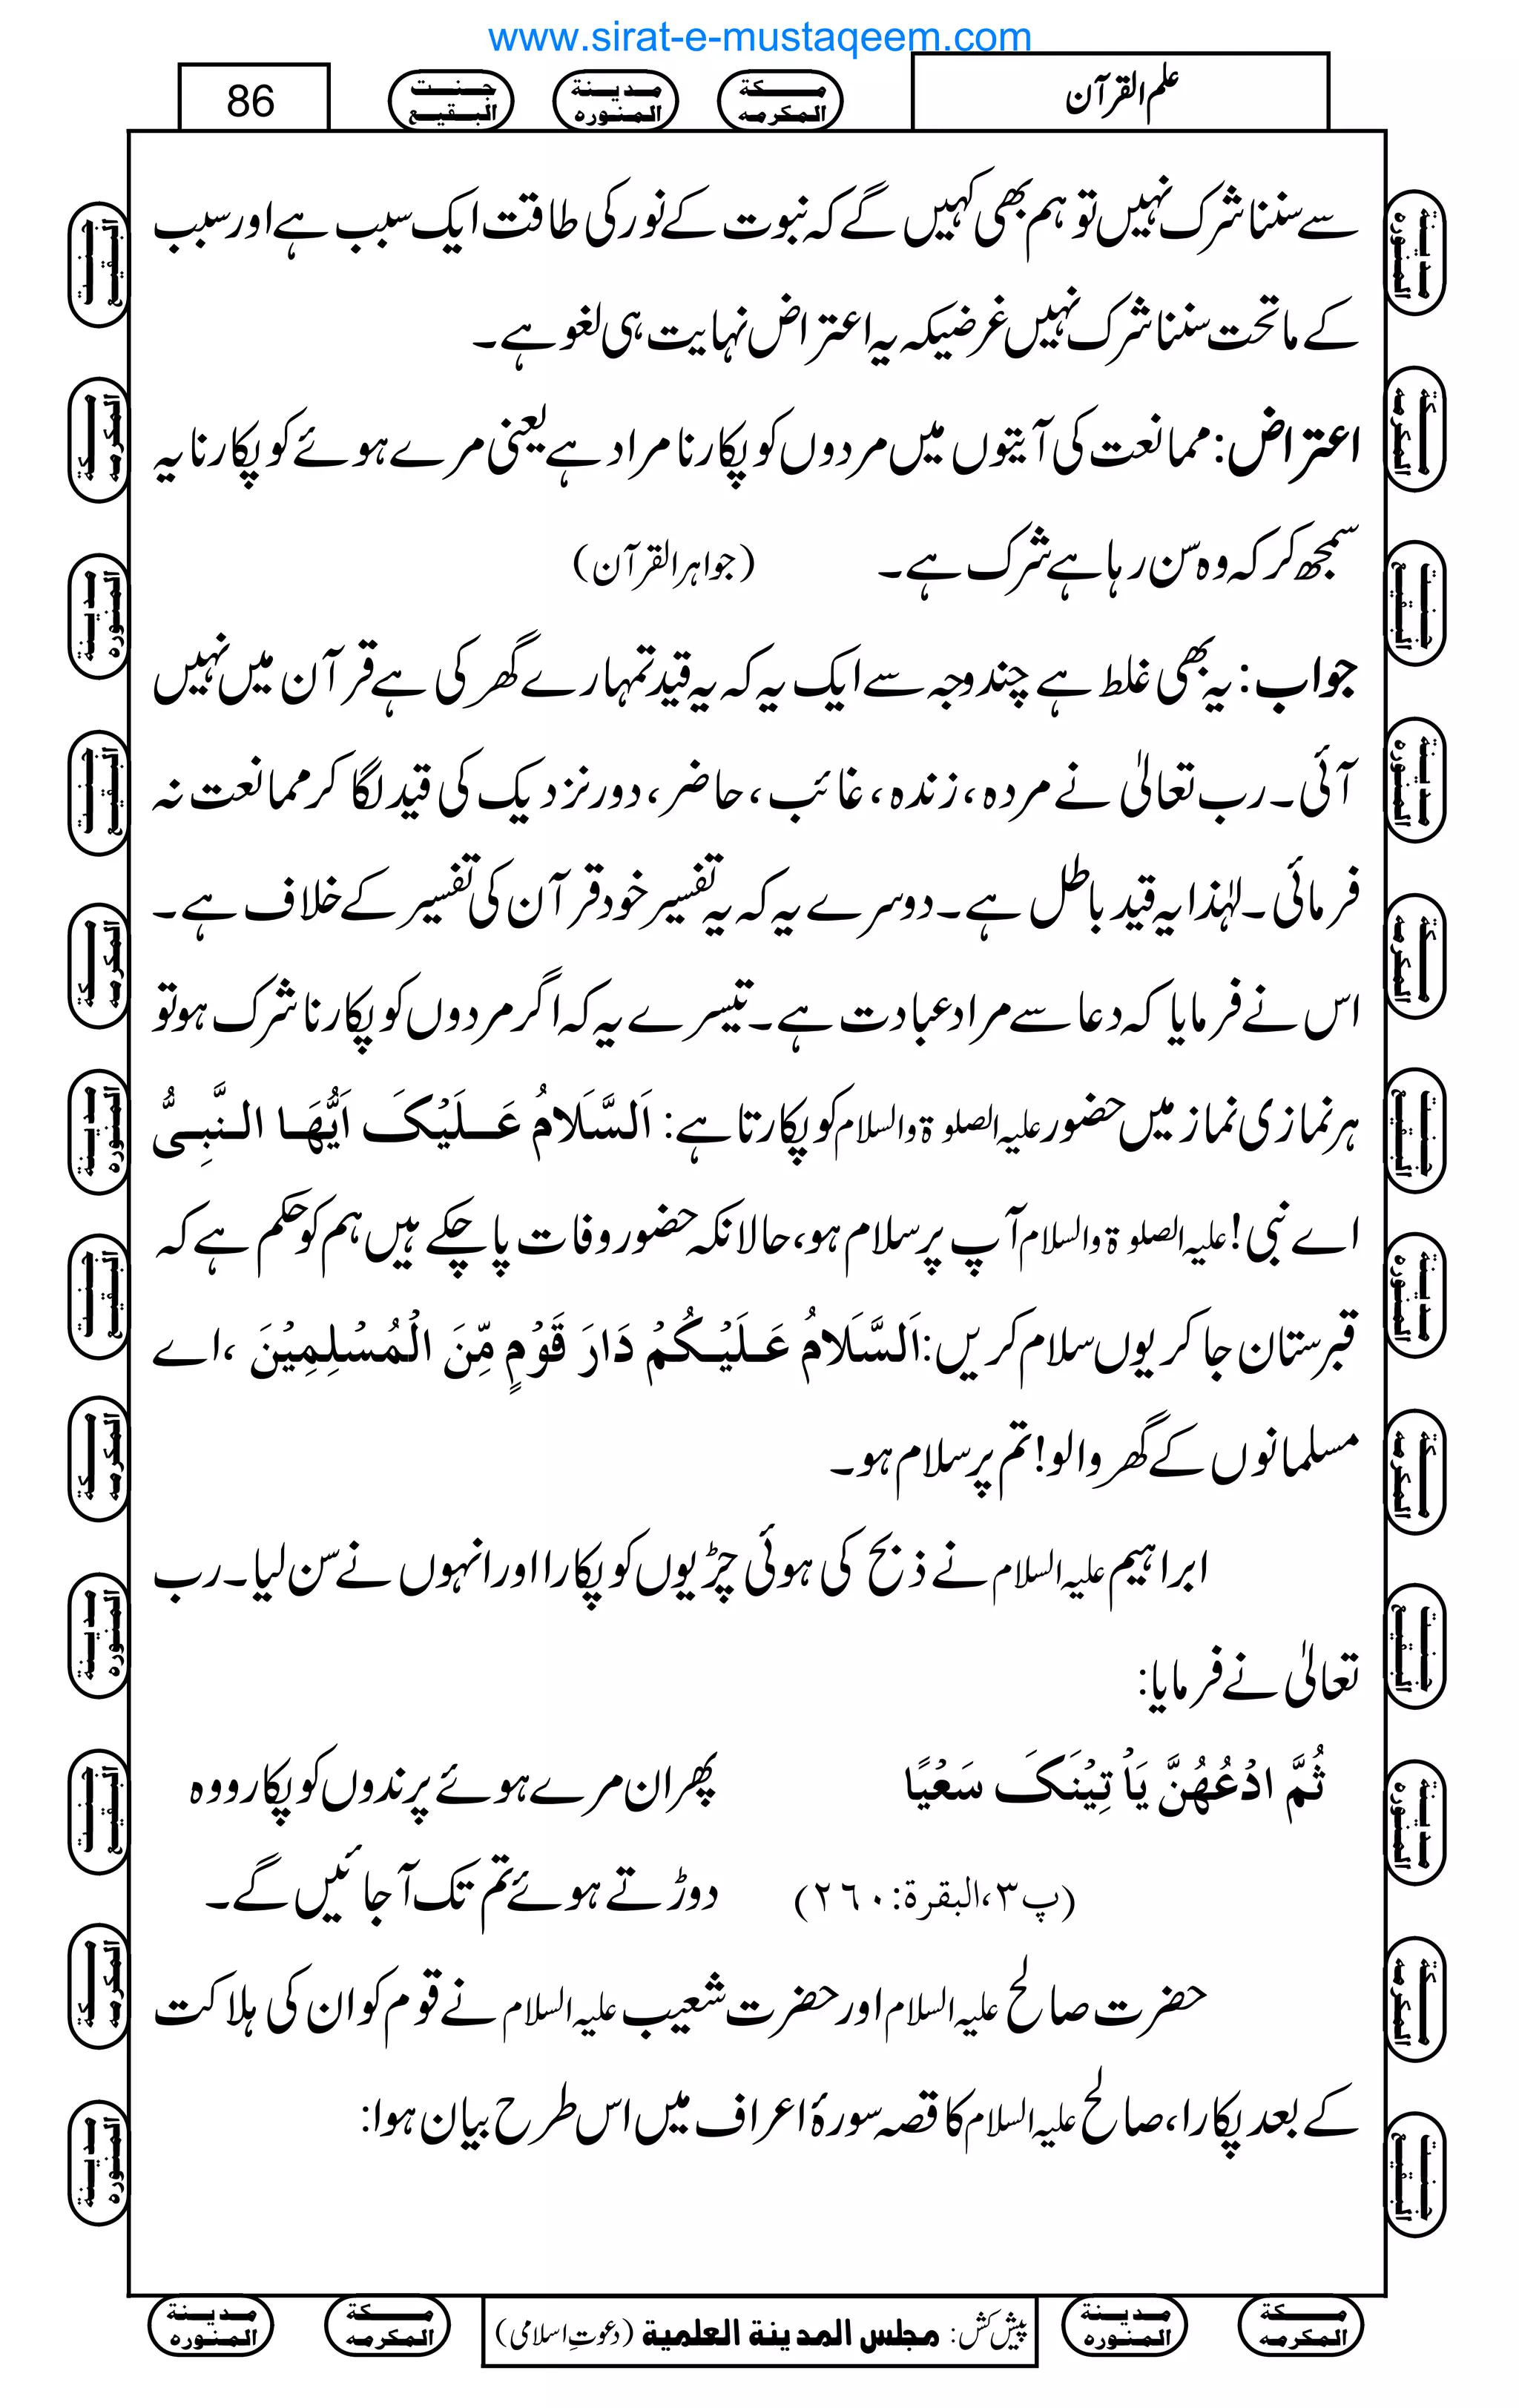 www.sirat-e-mustaqeem.com
علم القرآن
مـكة المكرمه
مدينة المنوره
جنت البقيع
86
سے سننا شرک نہیں تو ہم بھی کہیں گے کہ نبوت کے نور کی طاقت ایک سبب ہے اور سبب
کے ماتحت سننا شرک نہیں غرضیکہ یہ اعتراض نہایت ہی لغو ہے۔
اعتراض: ممانعت کی آیتوں میں مردوں کو پکارنا مراد ہے یعنی مرے ہوئے کو پکارنا یہ
سمجھ کر کہ وہ سن رہا ہے شرک ہے۔ (جواہر القرآن)
جواب: یہ بھی غلط ہے چند وجہ سے ایک یہ کہ یہ قید تمہارے گھر کی ہے قرآن میں نہیں
آئی۔ رب تعالٰی نے مردہ، زندہ، غائب، حاضر، دور نزدیک کی قید لگا کر ممانعت نہ
فرمائی۔ لہٰذا یہ قید باطل ہے۔ دوسرے یہ کہ یہ تفسیر خود قرآن کی تفسیر کے خلاف ہے۔
اس نے فرمایا کہ دعا سے مراد عبادت ہے۔ تیسرے یہ کہ اگر مردوں کو پکارنا شرک ہو تو
ہر نمازی نماز میں حضور علیہ الصلوۃ والسلام کو پکارتا ہے: اَلسَّلَامُ عَلَیْکَ اَیُّھَا النَّبِیُّ
اے نبی! علیہ الصلوۃ والسلام آپ پر سلام ہو، حالانکہ حضور وفات پاچکے ہیں ہم کو حکم ہے کہ
قبرستان جا کر یوں سلام کریں: اَلسَّلَامُ عَلَیْکُمْ دَارَ قَوْمٍ مِّنَ الْمُسْلِمِیْنَ ، اے
مسلمانوں کے گھر والو! تم پر سلام ہو۔
ابراہیم علیہ السلام نے ذبح کی ہوئی چڑیوں کو پکارا اور انہوں نے سن لیا۔ رب
تعالٰی نے فرمایا:
ثُمَّ ادْعُھُنَّ یَاْتِیْنَکَ سَعْیًا
(پ۳،البقرۃ:۲۶۰)
پھر ان مرے ہوئے پرندوں کو پکارو وہ
دوڑتے ہوئے تم تک آجائیں گے۔
حضرت صالح علیہ السلام اور حضرت شعیب علیہ السلام نے قوم کو ان کی ہلاکت
کے بعد پکارا، صالح علیہ السلام کا قصہ سورۂ اعراف میں اس طرح بیان ہوا:
مـكة المكرمه
مدينة المنوره
پیش کش: مجلس المدینة العلمیة (دعوتِ اسلامی)
مـكة المكرمه
مدينة المنوره